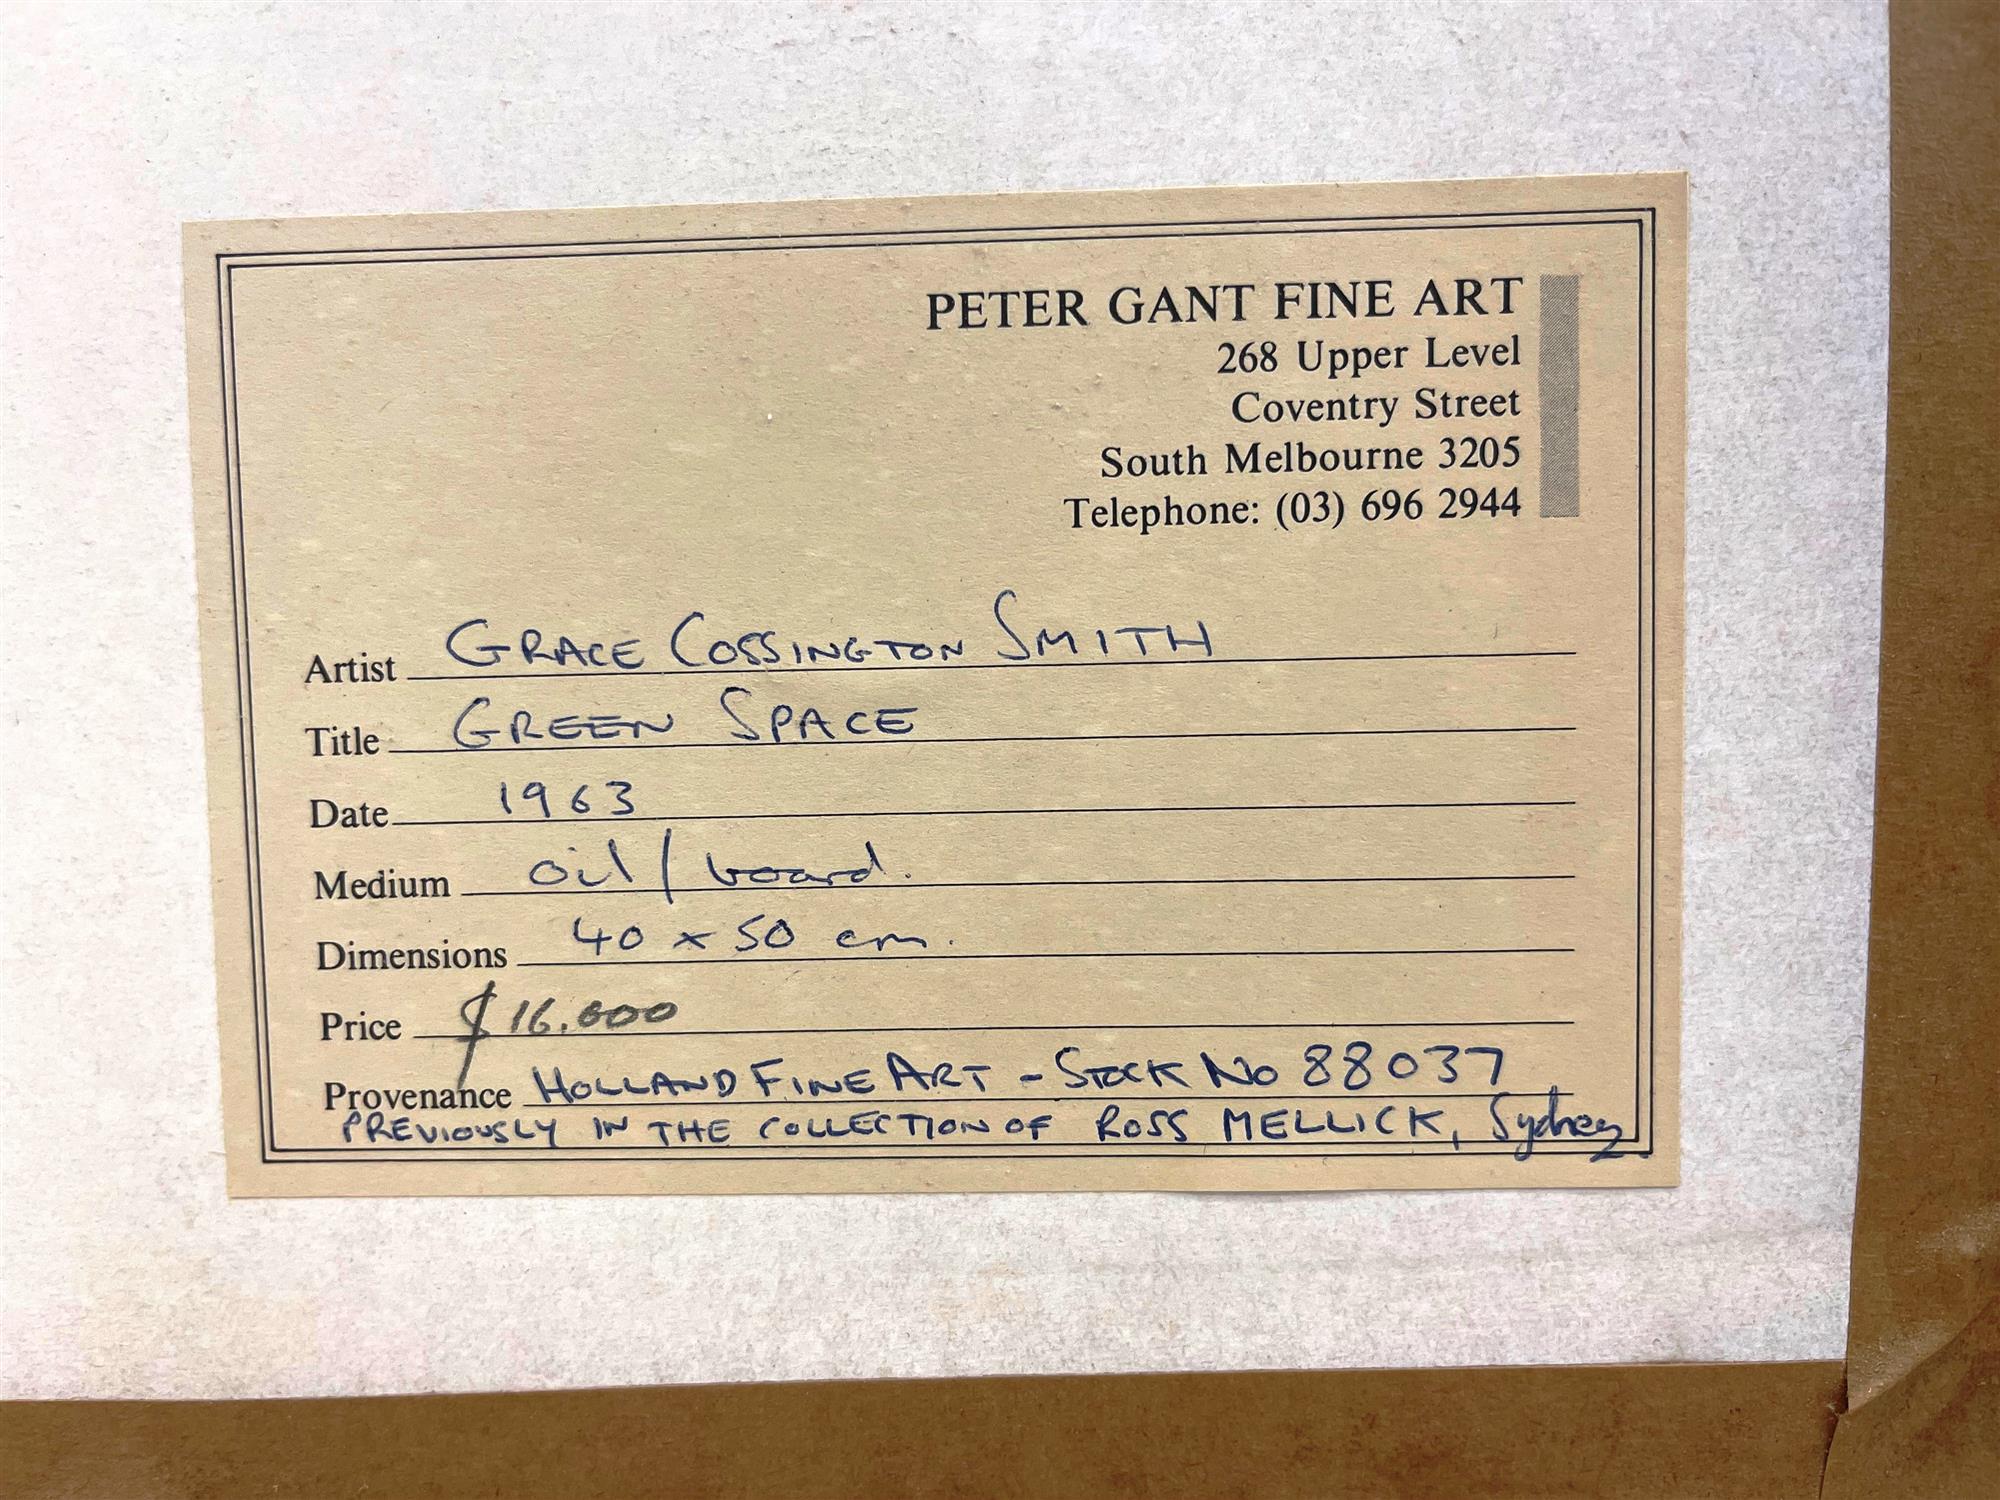 PETER GANT FINE ART
268 Upper Level
Coventry Street
South Melbourne 3205
Telephone: (03) 696 2944
Artist GRACE COSSINGTON SMITH
Title GREEN SPACE
Date 1963
Medium oil / board.
Dimensions 40 x 50 cm.
Price $16.000
Provenance HOLLAND FINE ART - STOCK NO 88037
PREVIOUSLY IN THE COLLECTION OF ROSS MELLICK, Sydney.